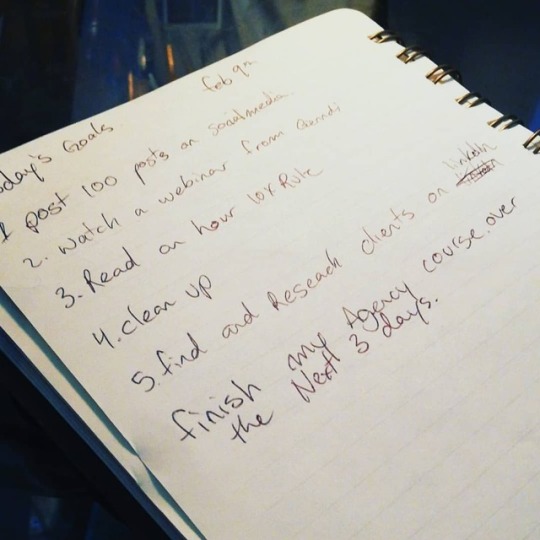 oday's Goals feb 9th
1 post 100 posts on socialmedia.
2. watch a webinar from
3. Read an hour 10x Rule
4. clean up
5. find and Reseach clients on linkdIn
finish my Agency course over
the Next 3 days.